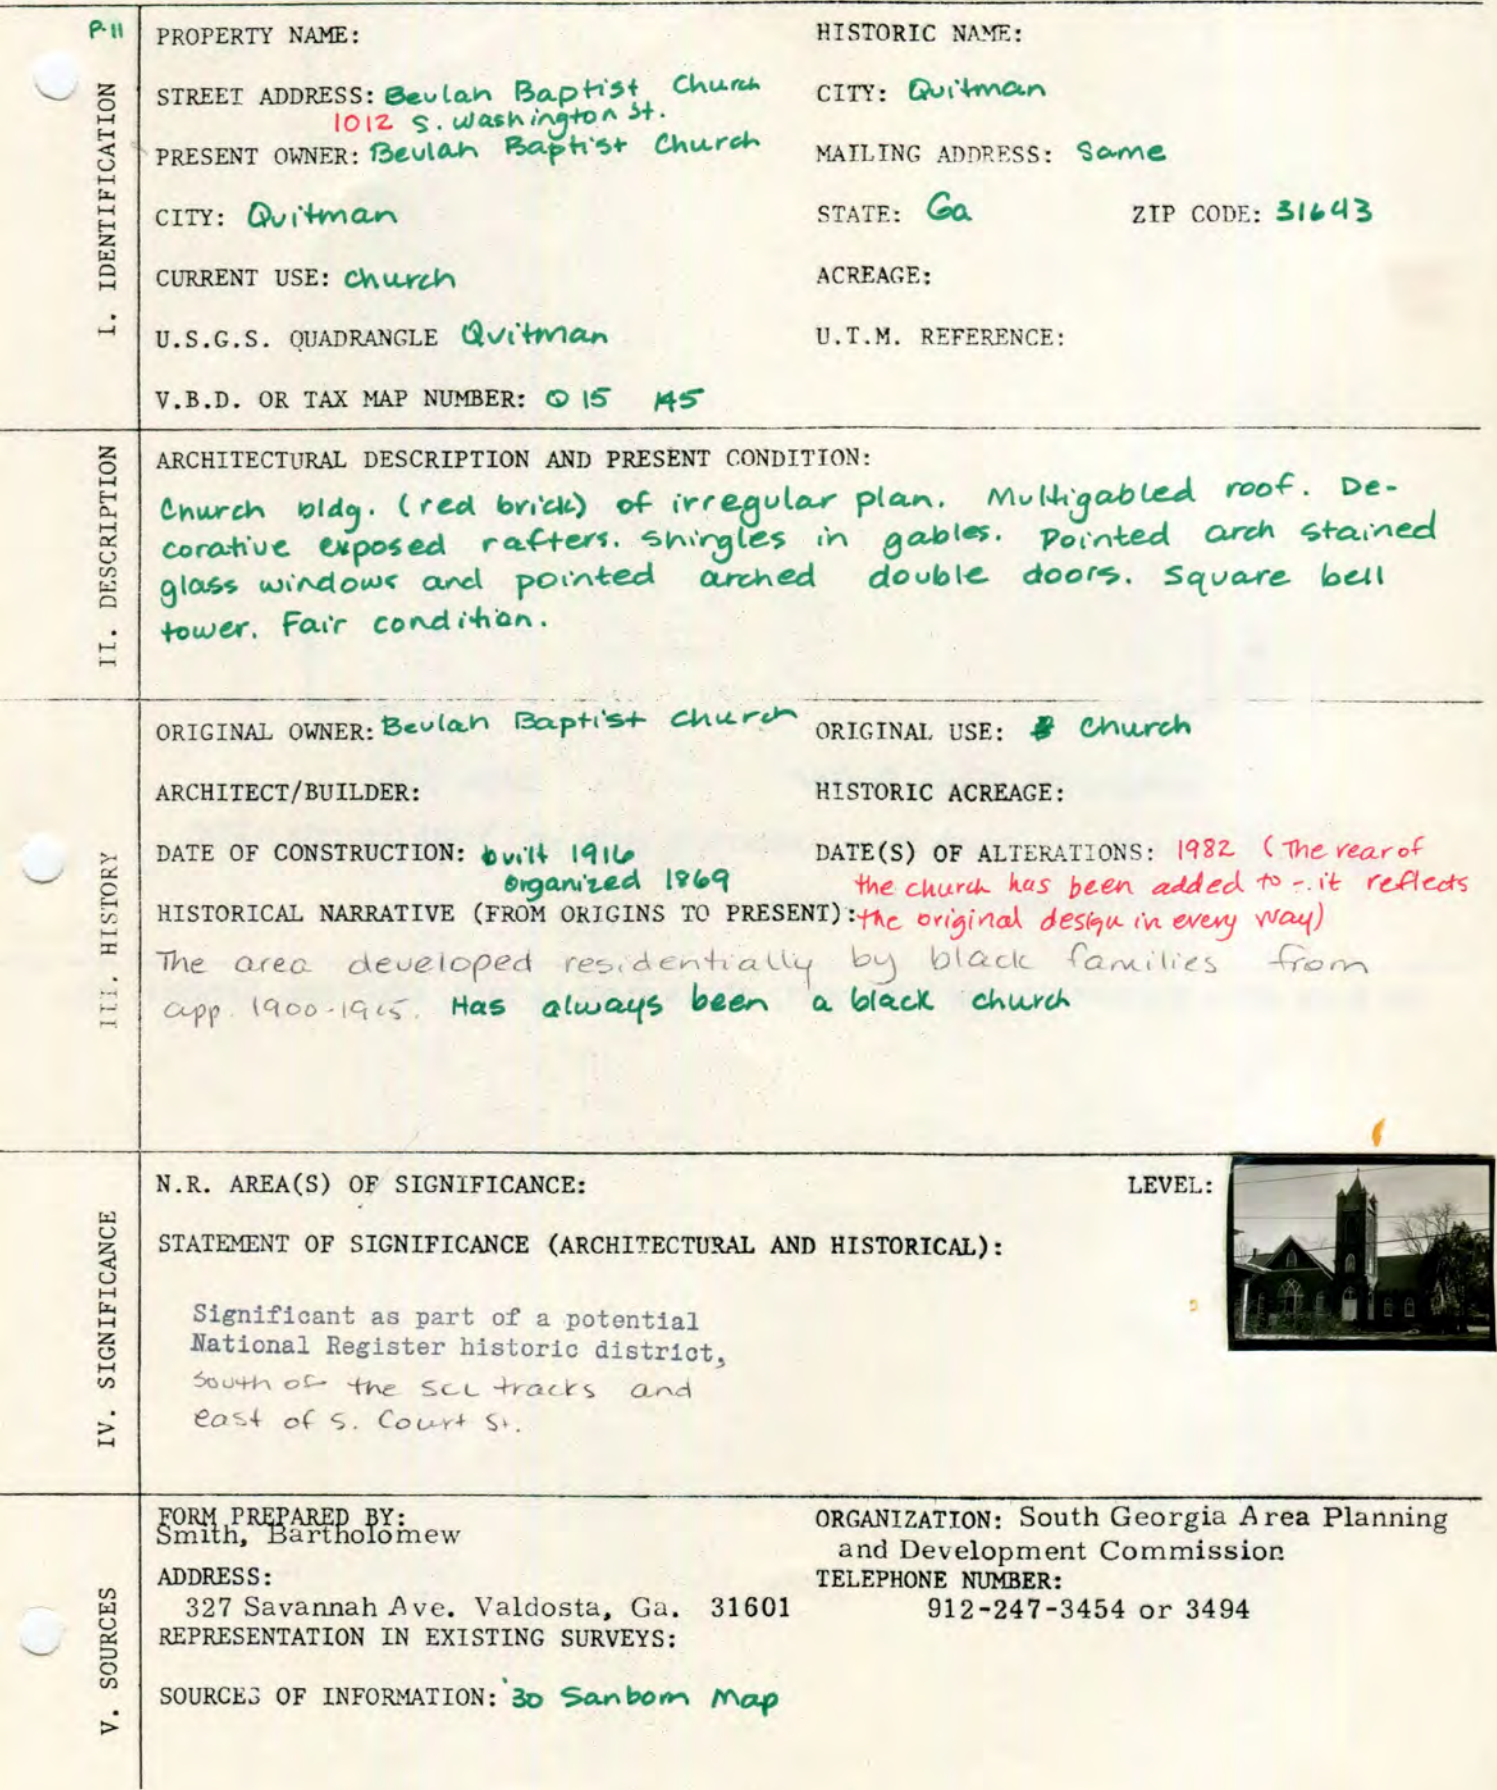 P-11
PROPERTY NAME: HISTORIC NAME:
STREET ADDRESS: Beulah Baptist Church CITY: Quitman
1012 S. Washington St.
PRESENT OWNER: Beulah Baptist Church MAILING ADDRESS: Same
CITY: Quitman STATE: Ga ZIP CODE: 31643
CURRENT USE: Church ACREAGE:
U.S.G.S. QUADRANGLE Quitman U.T.M. REFERENCE:
V.B.D. OR TAX MAP NUMBER: Q 15 145
I. IDENTIFICATION
ARCHITECTURAL DESCRIPTION AND PRESENT CONDITION:
Church bldg. (red brick) of irregular plan. Multigabled roof. De-
corative exposed rafters. Shingles in gables. Pointed arch stained
glass windows and pointed arched double doors. Square bell
tower. Fair condition.
II. DESCRIPTION
ORIGINAL OWNER: Beulah Baptist Church ORIGINAL USE: Church
ARCHITECT/BUILDER: HISTORIC ACREAGE:
DATE OF CONSTRUCTION: built 1916 DATE(S) OF ALTERATIONS: 1982 (The rear of
organized 1869 the church has been added to - it reflects
HISTORICAL NARRATIVE (FROM ORIGINS TO PRESENT): the original design in every way)
The area developed residentially by black families from
app. Has always been a black church
III. HISTORY
N.R. AREA(S) OF SIGNIFICANCE: LEVEL:
STATEMENT OF SIGNIFICANCE (ARCHITECTURAL AND HISTORICAL):
Significant as part of a potential
National Register historic district,
south of the SCL tracks and
east of S. Court St.
IV. SIGNIFICANCE
FORM PREPARED BY: ORGANIZATION: South Georgia Area Planning
Smith, Bartholomew and Development Commission
ADDRESS: TELEPHONE NUMBER:
327 Savannah Ave. Valdosta, Ga. 31601 912-247-3454 or 3494
REPRESENTATION IN EXISTING SURVEYS:
SOURCES OF INFORMATION: '30 Sanborn Map
V. SOURCES